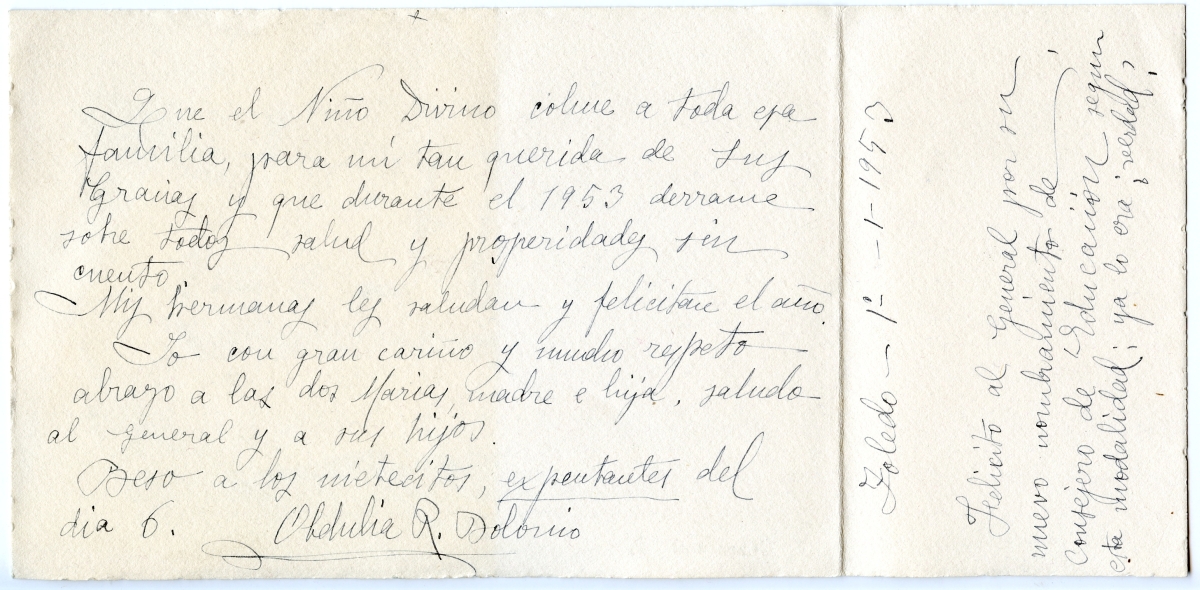 Que el Niño Divino colme a toda esa
familia, para mí tan querida de sus
Gracias y que durante el 1953 derrame
sobre todos salud y properidades sin
cuento.
Mis hermanas les saludan y felicitan el año.
Yo con gran cariño y mucho respeto
abrazo a las dos Marias, madre e hija, saludo
al general y a sus hijos.
Beso a los nietecitos, expentantes del
dia 6. Obdulia R. Dolonio
Toledo - 1º - 1 - 1953
Felicito al General por su
nuevo nombramiento de
Consejero de Educación segun
esta modalidad; ya lo era ¡verdad!